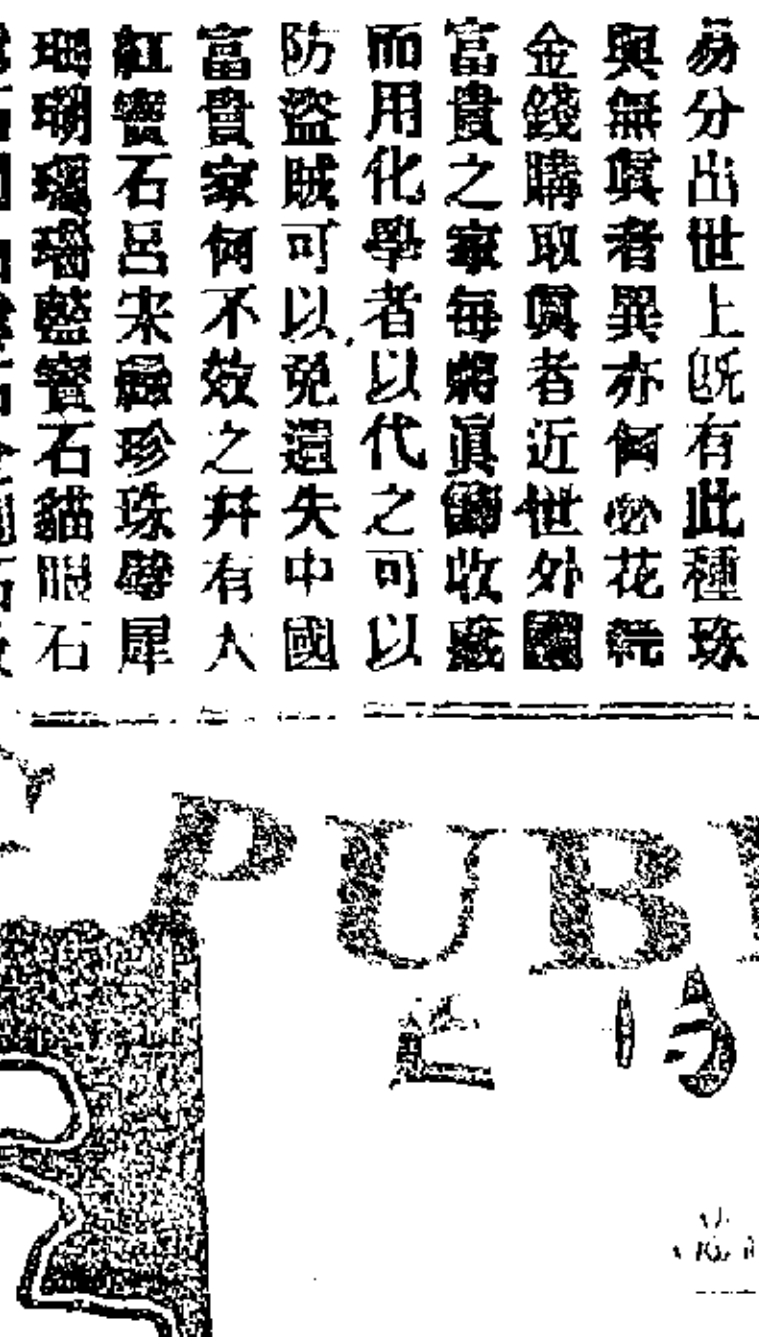 易分出世上旣有此種珠
與無眞者異亦何必花銃
金錢購取眞者近世外國
富貴之家每將眞飾收藏
而用化學者以代之可以
防盜賊可以免遺失中國
富貴家何不效之幷有人
紅寶石呂宋 珍珠 犀
珊瑚 瑙藍寶石貓眼石
PUB